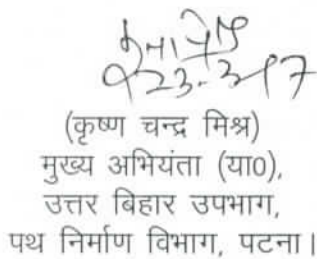 23.3.17
(कृष्ण चन्द्र मिश्र)
मुख्य अभियंता (या0),
उत्तर बिहार उपभाग,
पथ निर्माण विभाग, पटना।